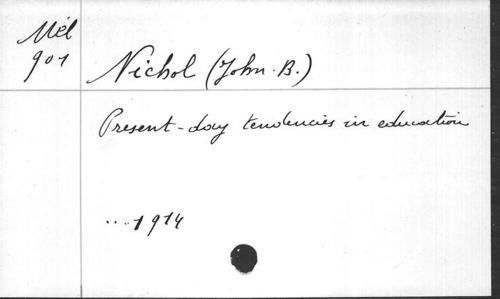 Mél
901
Nichol (John. B.)
Present-day tendencies in education
...1914